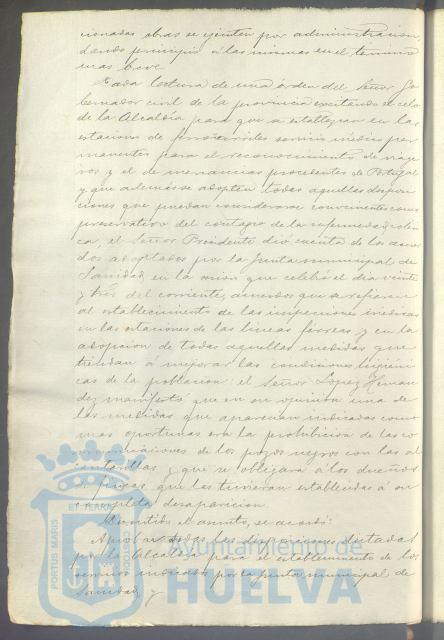 cionadas obras se ejecuten por administracion,
dando principio á las mismas en el término
mas breve
Dada lectura de una órden del Señor Go-
bernador civil de la provincia excitando el celo
de la Alcaldia para que se establezcan en las
estaciones de ferrocarriles servicios médicos per-
manentes para el reconocimiento de viage-
ros y el de mercancias procedentes de Portugal
y que además se adopten todas aquellas disposi-
ciones que puedan considerarse convenientes como
preservativo del contagio de la enfermedad
el Señor Presidente dió cuenta de los acuer-
dos adoptados por la Junta municipal de
Sanidad en la sesión que celebró el dia veinte
y tres del corriente, acuerdos que se refieren
al establecimiento de las inspecciones médicas
en las estaciones de las lineas férreas y en la
adopcion de todas aquellas medidas que
tiendan á mejorar las condiciones higiéni-
cas de la poblacion: el Señor Lopez Hernan-
dez manifestó que en su opinión una de
las medidas que aparecian indicadas como
mas oportunas era la prohibicion de las co-
municaciones de los pozos negros con las al-
cantarillas y que se obligara á los dueños
de fincas que las tuvieran establecidas á su
completa desaparicion.
Discutido el asunto, se acordó:
Aprobar todas las disposiciones dictadas
por la Alcaldia para el establecimiento de los
servicios indicados por la Junta municipal de
Sanidad, y
PORTUS MARIS
ET TERRAE
Ayuntamiento de
HUELVA